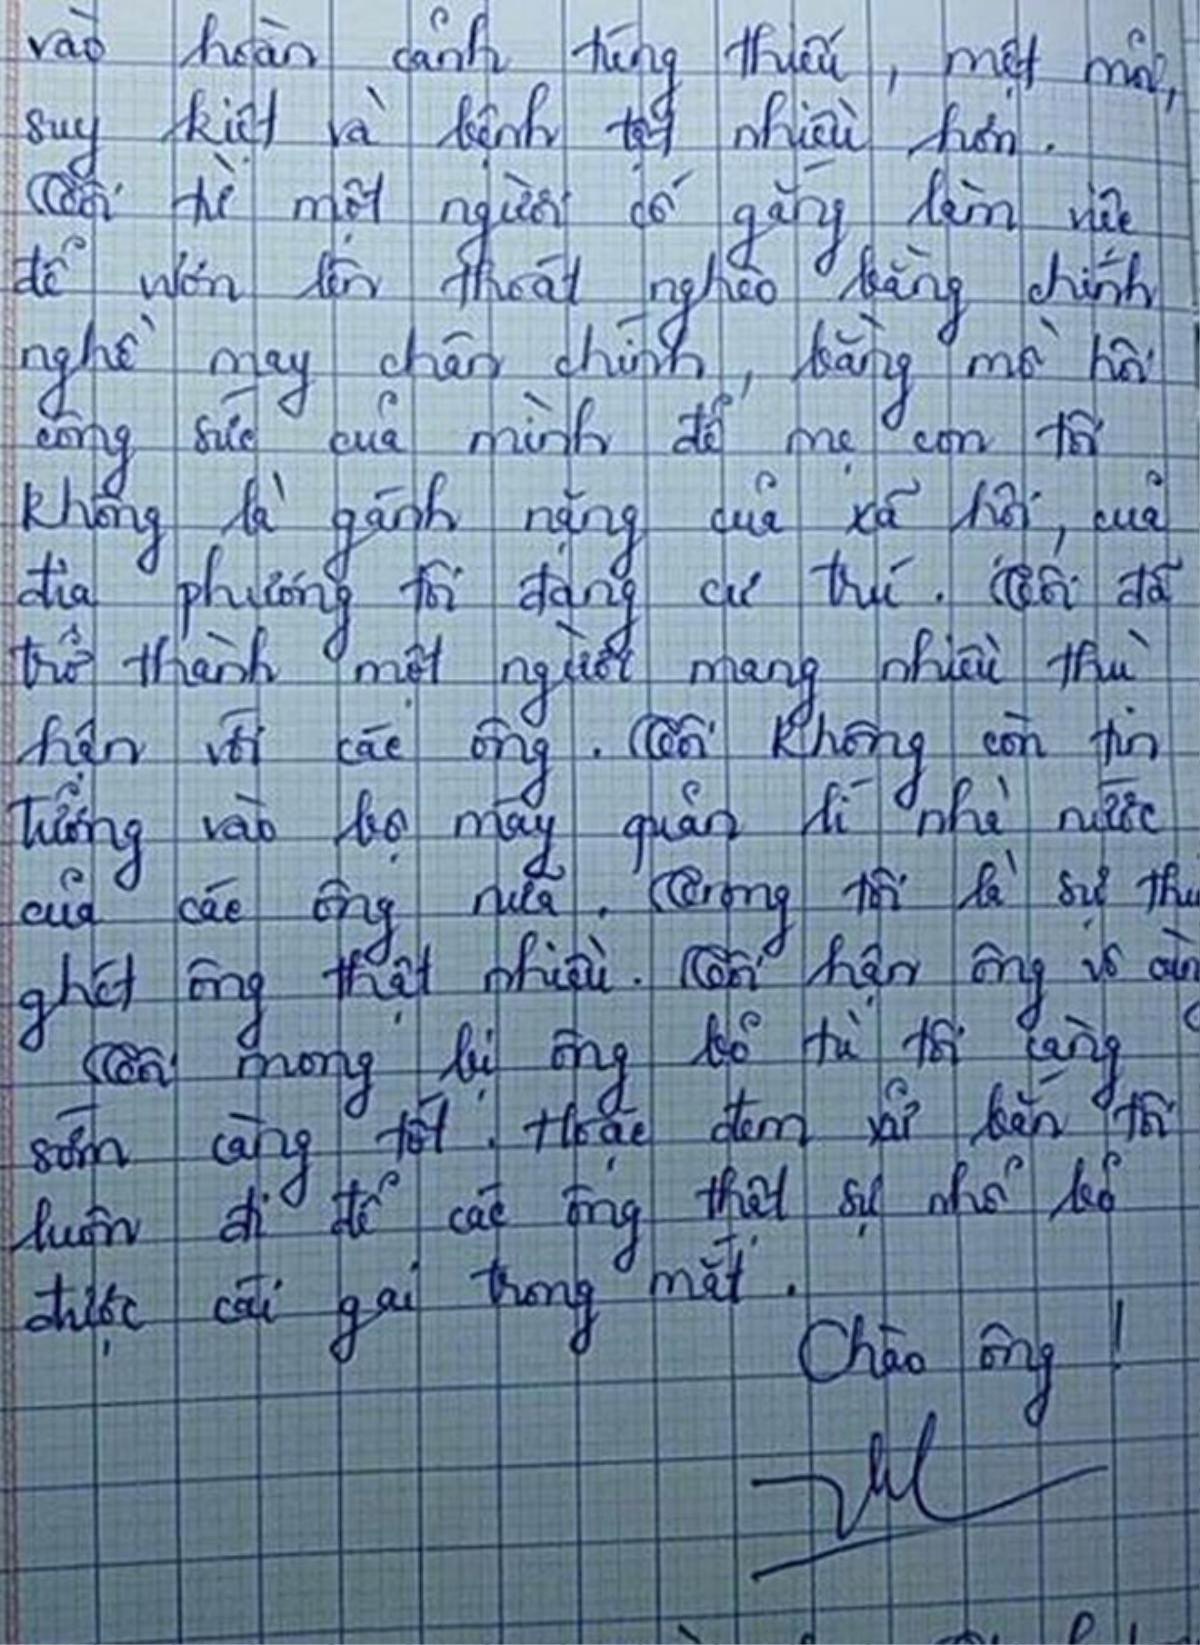 vào hoàn cảnh túng thiếu, mệt mỏi,
suy kiệt và bệnh tật nhiều hơn.
Tôi từ một người cố gắng làm việc
để vươn lên thoát nghèo bằng chính
nghề may chân chính, bằng mồ hôi
công sức của mình để mẹ con tôi
không là gánh nặng của xã hội, của
địa phương tôi đang cư trú. Tôi đã
trở thành một người mang nhiều thù
hận với các ông. Tôi không còn tin
tưởng vào bộ máy quản lí nhà nước
của các ông nữa. Trong tôi là sự thù
ghét ông thật nhiều. Tôi hận ông vô cùng
Tôi mong lũ ông bỏ tù tôi càng
sớm càng tốt. Hoặc đem xử bắn tôi
luôn đi để các ông thật sự nhổ bỏ
được cái gai trong mắt.
Chào ông !